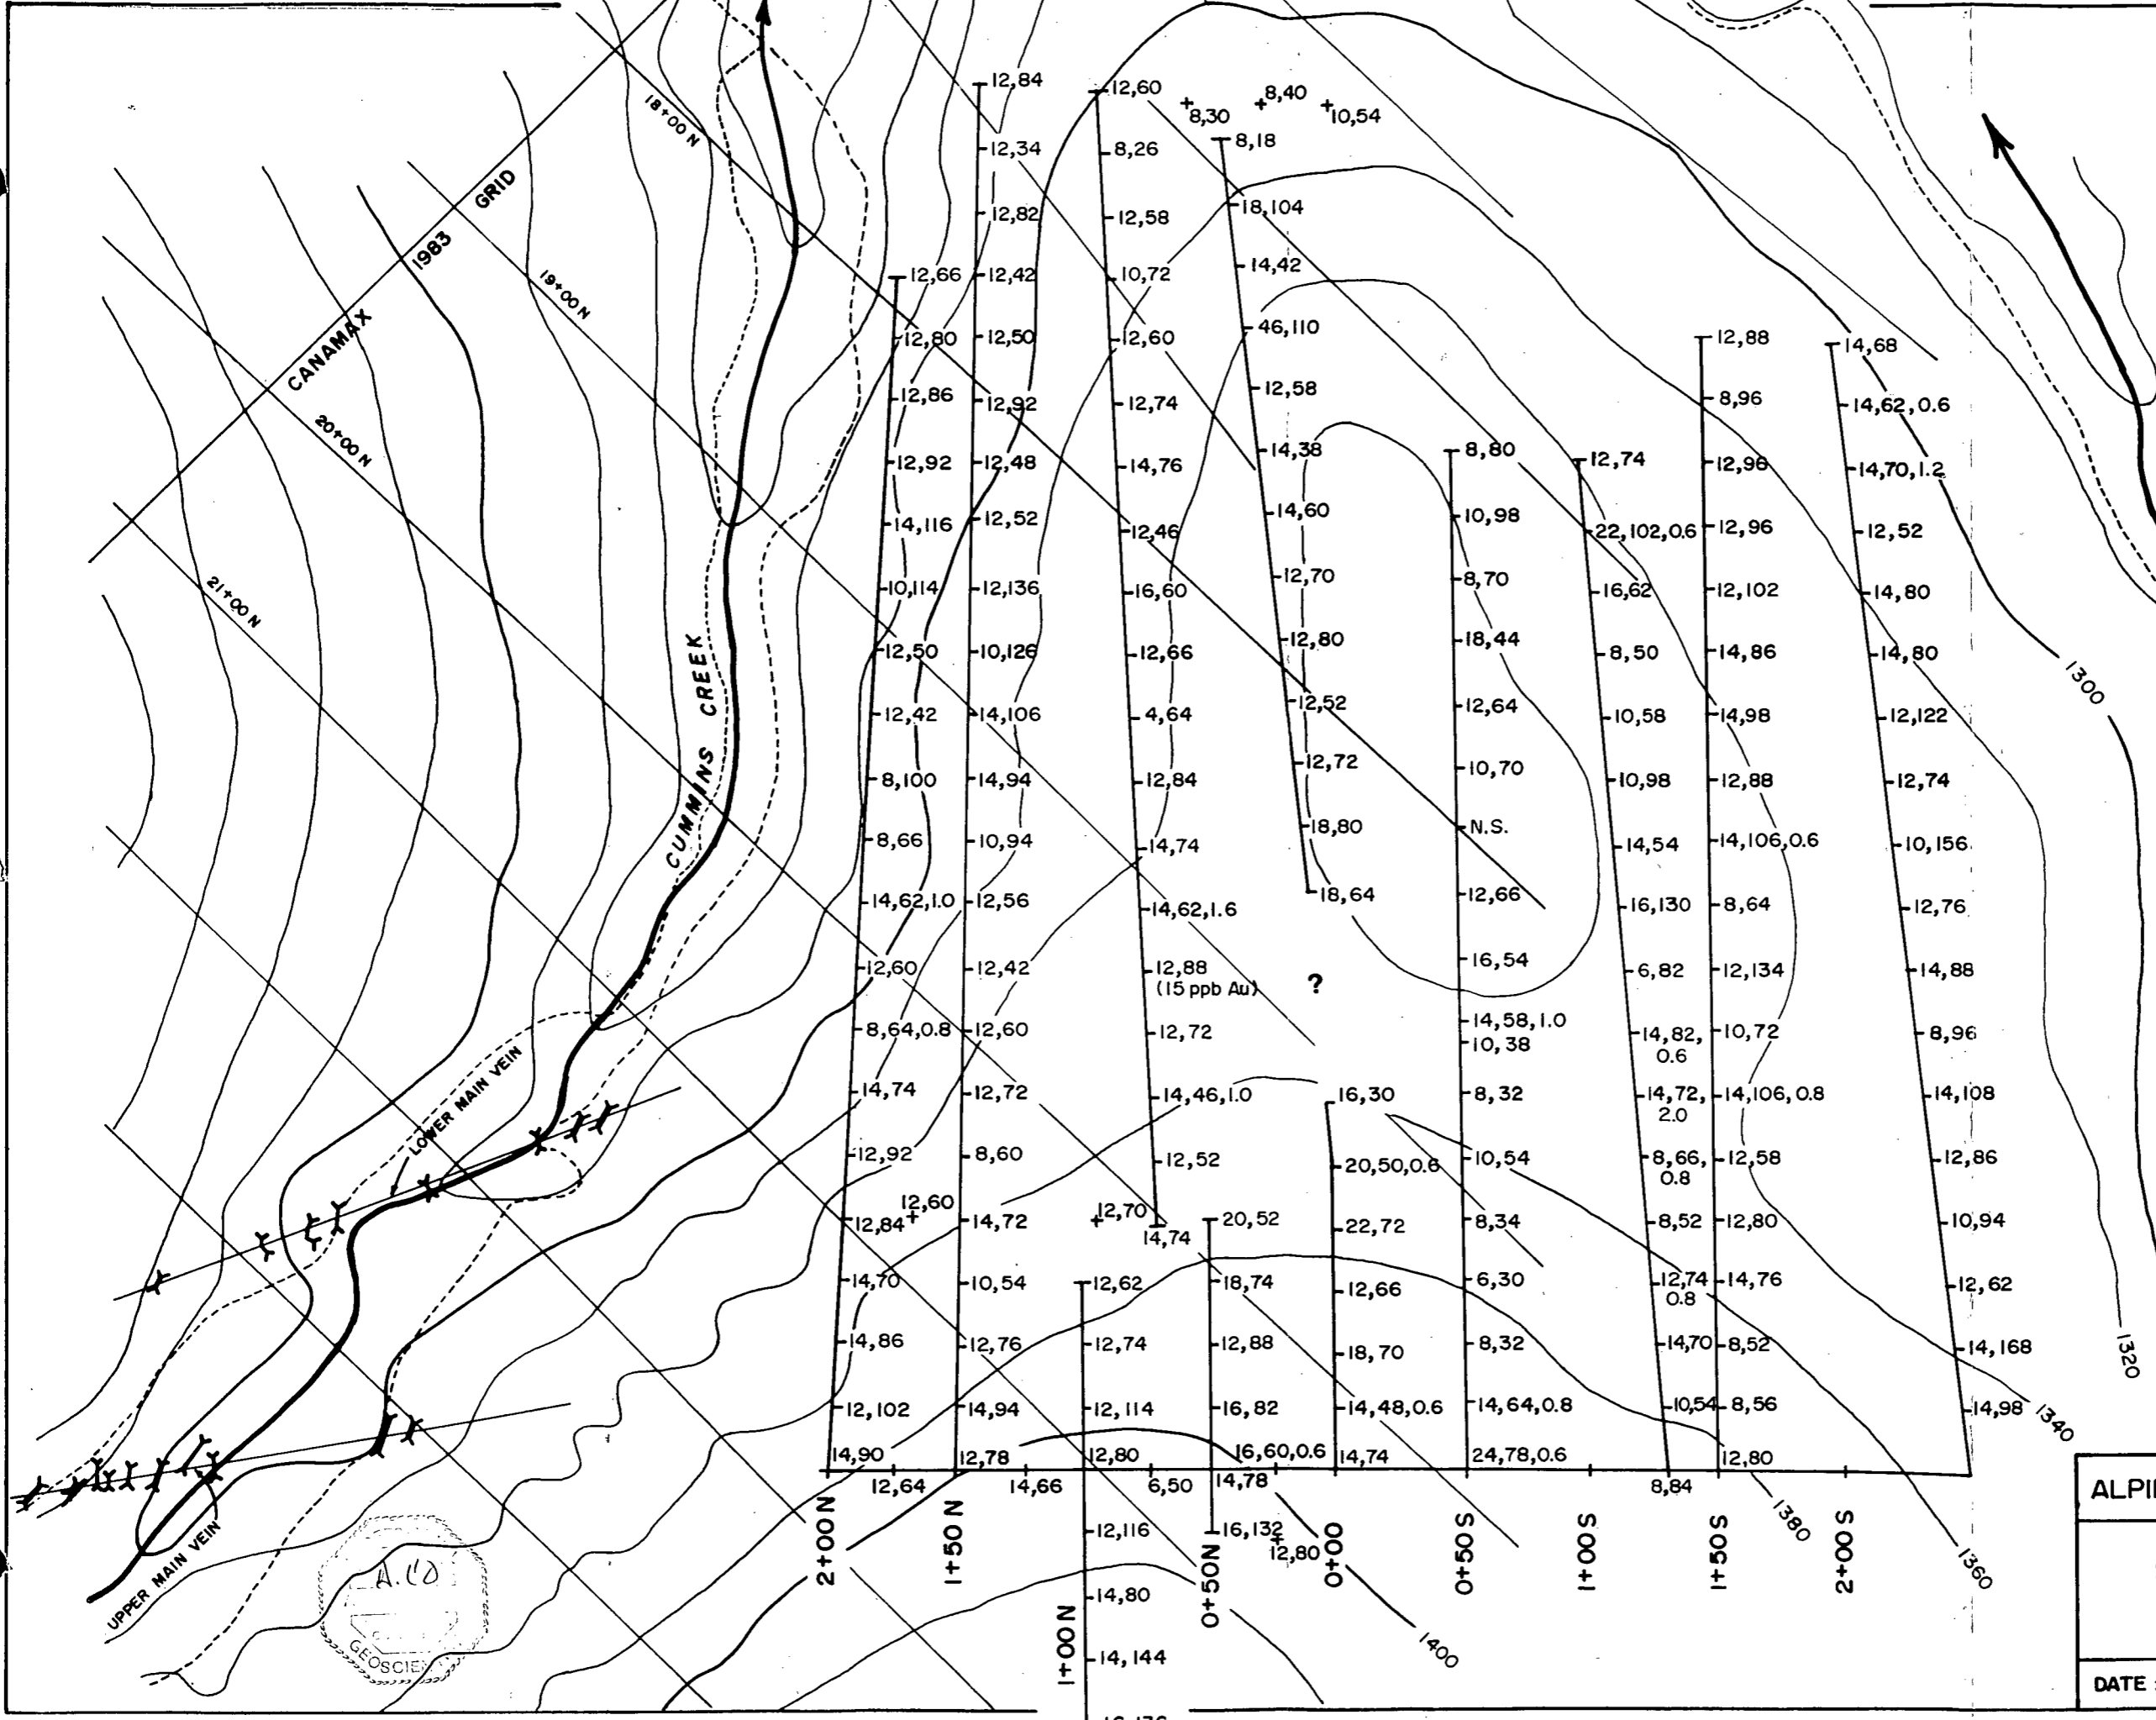 CANAMAX
1983
GRID
18+00 N
19+00 N
20+00 N
21+00 N
CUMMINS CREEK
LOWER MAIN VEIN
UPPER MAIN VEIN
12,66
12,80
12,86
12,92
14,116
10,114
12,50
12,42
8,100
8,66
14,62,1.0
12,60
8,64,0.8
14,74
12,92
12,84
12,60
14,70
14,86
12,102
14,90
12,64
2+00 N
12,84
12,34
12,82
12,42
12,50
12,92
12,48
12,52
12,136
10,126
14,106
14,94
10,94
12,56
12,42
12,60
12,72
8,60
14,72
10,54
12,76
14,94
12,78
14,66
1+50 N
12,60
8,26
12,58
10,72
12,60
12,74
14,76
12,46
16,60
12,66
4,64
12,84
14,74
14,62,1.6
12,88
(15 ppb Au)
12,72
14,46,1.0
12,52
12,70
14,74
12,62
12,74
12,114
12,80
6,50
12,116
14,80
14,144
1+00 N
8,30
8,40
10,54
8,18
18,104
14,42
46,110
12,58
14,38
14,60
12,70
12,80
12,52
12,72
18,80
18,64
?
20,52
18,74
12,88
16,82
16,60,0.6
14,78
16,132
12,80
0+50N
16,30
20,50,0.6
22,72
12,66
18,70
14,48,0.6
14,74
0+00
8,80
10,98
8,70
18,44
12,64
10,70
N.S.
12,66
16,54
14,58,1.0
10,38
8,32
10,54
8,34
6,30
8,32
14,64,0.8
24,78,0.6
0+50 S
12,74
22,102,0.6
16,62
8,50
10,58
10,98
14,54
16,130
6,82
14,82,
0.6
14,72,
2.0
8,66,
0.8
8,52
12,74
0.8
14,70
10,54
8,84
1+00 S
12,88
8,96
12,96
12,96
12,102
14,86
14,98
12,88
14,106,0.6
8,64
12,134
10,72
14,106,0.8
12,58
12,80
14,76
8,52
8,56
12,80
1+50 S
14,68
14,62,0.6
14,70,1.2
12,52
14,80
14,80
12,122
12,74
10,156
12,76
14,88
8,96
14,108
12,86
10,94
12,62
14,168
14,98
2+00 S
1300
1320
1340
1360
1380
1400
GEOSCIE
DATE :